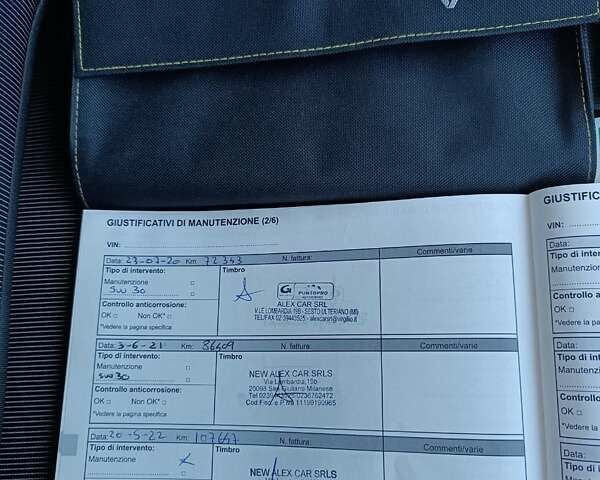 GIUSTIFICATIVI DI MANUTENZIONE (2/6)
VIN:
Data: 23-07-20 Km: 72343 N. fattura: Commenti/varie
Tipo di intervento: Timbro
Manutenzione
5W30
G PUNTOPRO
ALEX CAR SRL
V.LE LOMBARDIA 19B - SESTO ULTERIANO (MI)
TEL/FAX 02 39443525 - alexcarsrl@virgilio.it
Controllo anticorrosione:
OK Non OK*
*Vedere la pagina specifica
Data: 3-6-21 Km: 86409 N. fattura: Commenti/varie
Tipo di intervento: Timbro
Manutenzione
5W30
NEW ALEX CAR SRLS
Via Lombardia, 19b
20098 San Giuliano Milanese
Cod.Fisc. e P.Iva 11199190965
Controllo anticorrosione:
OK Non OK*
*Vedere la pagina specifica
Data: 20-5-22 Km: 107647 N. fattura: Commenti/varie
Tipo di intervento: Timbro
Manutenzione
NEW ALEX CAR SRLS
GIUSTIFIC
VIN:
Data:
Tipo di inter
Manutenzion
Controllo an
OK
*Vedere la pa
Data:
Tipo di inter
Manutenzion
Controllo an
OK
*Vedere la
Data:
Tipo di i
Manuten